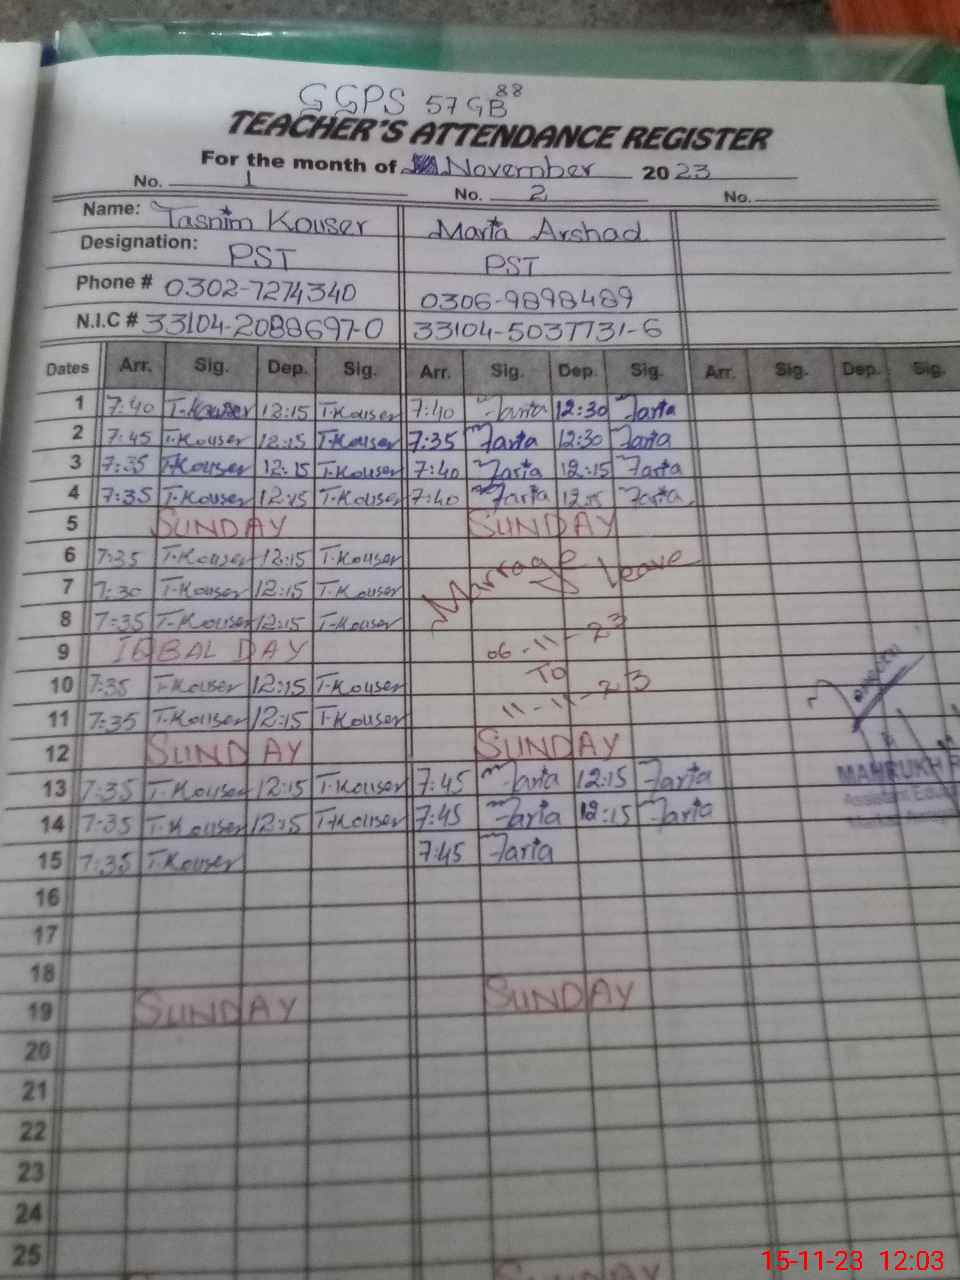 GGPS 57 GB 88
TEACHER'S ATTENDANCE REGISTER
For the month of November 2023
No. 1 No. 2 No.
Name: Tasnim Kouser Maria Arshad
Designation: PST PST
Phone # 0302-7274340 0306-9898489
N.I.C # 33104-2088697-0 33104-5037731-6
Dates Arr. Sig. Dep. Sig. Arr. Sig. Dep. Sig. Arr. Sig. Dep. Sig.
1 7:40 T-Kouser 12:15 T-Kouser 7:40 Maria 12:30 Maria
2 7:45 T-Kouser 12:15 T-Kouser 7:35 Maria 12:30 Maria
3 7:35 T-Kouser 12:15 T-Kouser 7:40 Maria 12:15 Maria
4 7:35 T-Kouser 12:15 T-Kouser 7:40 Maria 12:15 Maria
5 SUNDAY SUNDAY
6 7:35 T-Kouser 12:15 T-Kouser Marrage Leave
7 7:30 T-Kouser 12:15 T-Kouser
8 7:35 T-Kouser 12:15 T-Kouser 06-11-23
9 IQBAL DAY TO
10 7:35 T-Kouser 12:15 T-Kouser 11-11-23
11 7:35 T-Kouser 12:15 T-Kouser
12 SUNDAY SUNDAY
13 7:35 T-Kouser 12:15 T-Kouser 7:45 Maria 12:15 Maria
MAHRUKH
14 7:35 T-Kouser 12:15 T-Kouser 7:45 Maria 12:15 Maria
Assistant
15 7:35 T-Kouser 7:45 Maria
16
17
18
19 SUNDAY SUNDAY
20
21
22
23
24
25
15-11-23 12:03